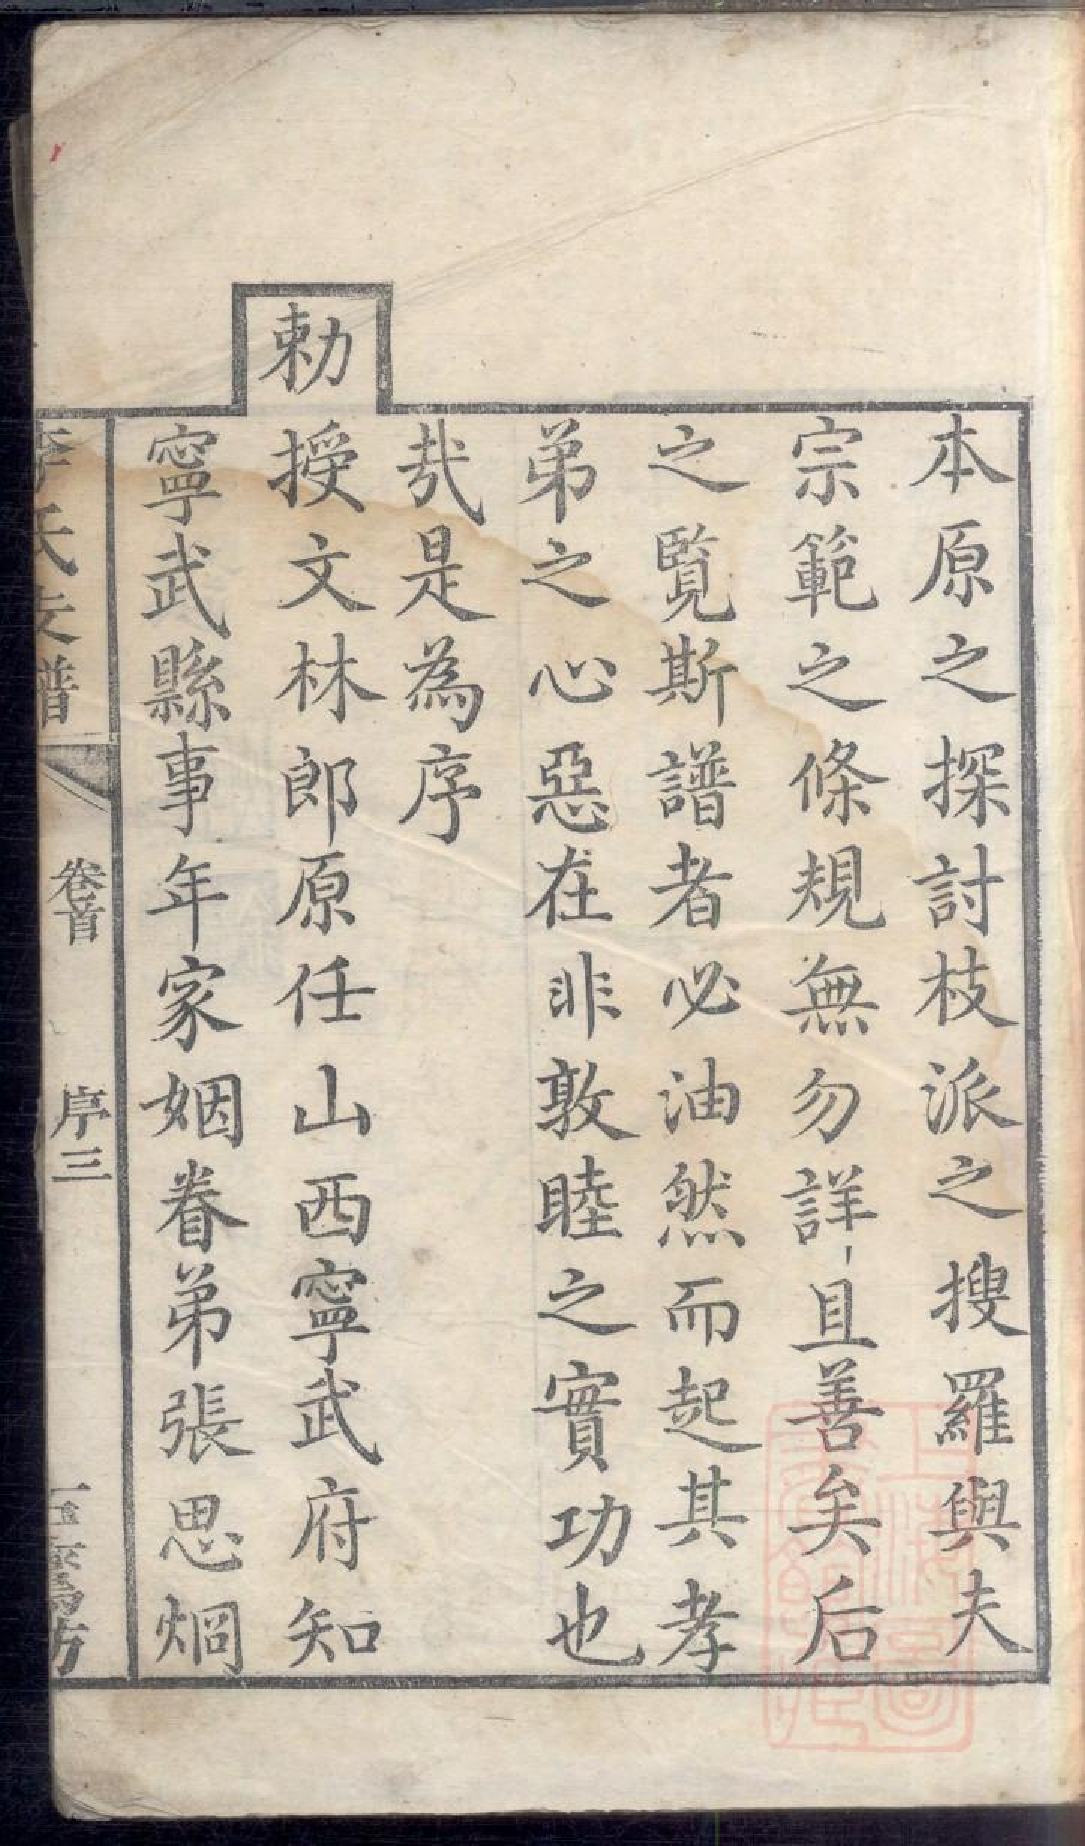 本原之探討枝派之搜羅與夫
宗範之條規無勿詳且善矣后
之覧斯譜者必油然而起其孝
弟之心惡在非敦睦之實功也
㢤是為序
勅授文林郎原任山西寧武府知
寧武縣事年家姻眷弟張思烱
李氏支譜
卷首
序三